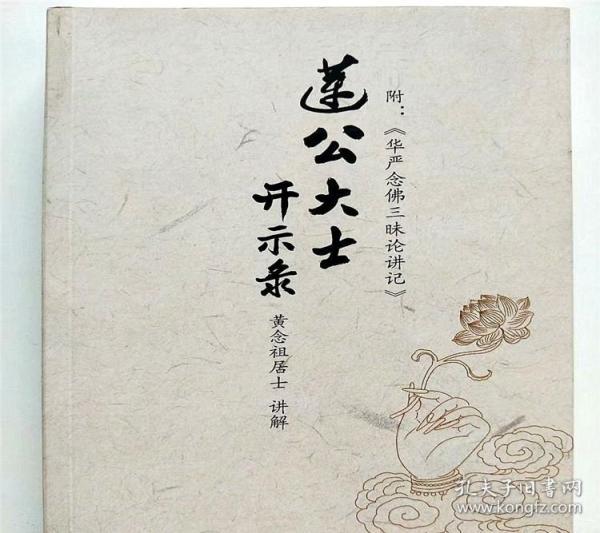 附：《华严念佛三昧论讲记》
莲公大士
开示录
黄念祖居士 讲解
孔夫子旧书网
www.kongfz.com